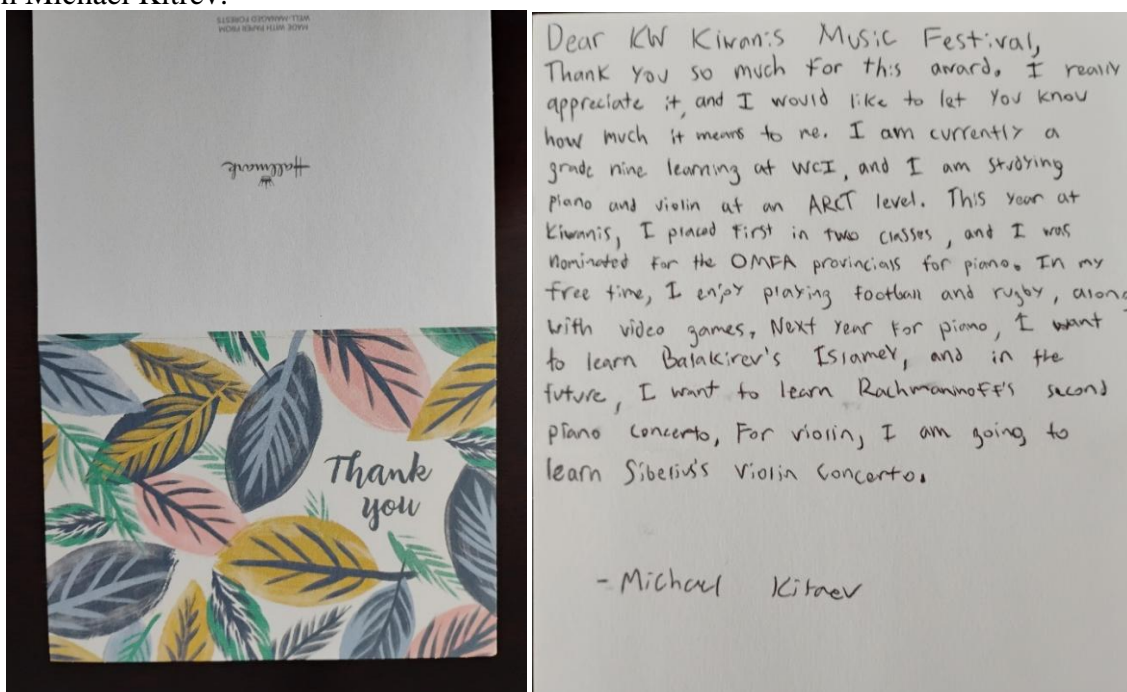 Michael Kitrev.
MADE WITH PAPER FROM
WELL-MANAGED FORESTS
Hallmark
Thank
you
Dear KW Kiwanis Music Festival,
Thank you so much for this award. I really
appreciate it, and I would like to let you know
how much it means to me. I am currently a
grade nine learning at WCI, and I am studying
piano and violin at an ARCT level. This year at
Kiwanis, I placed first in two classes, and I was
nominated for the OMFA provincials for piano. In my
free time, I enjoy playing football and rugby, along
with video games. Next year for piano, I want
to learn Balakirev's Islamey, and in the
future, I want to learn Rachmaninoff's second
piano concerto, For violin, I am going to
learn Sibelius's violin concerto.
- Michael Kitaev